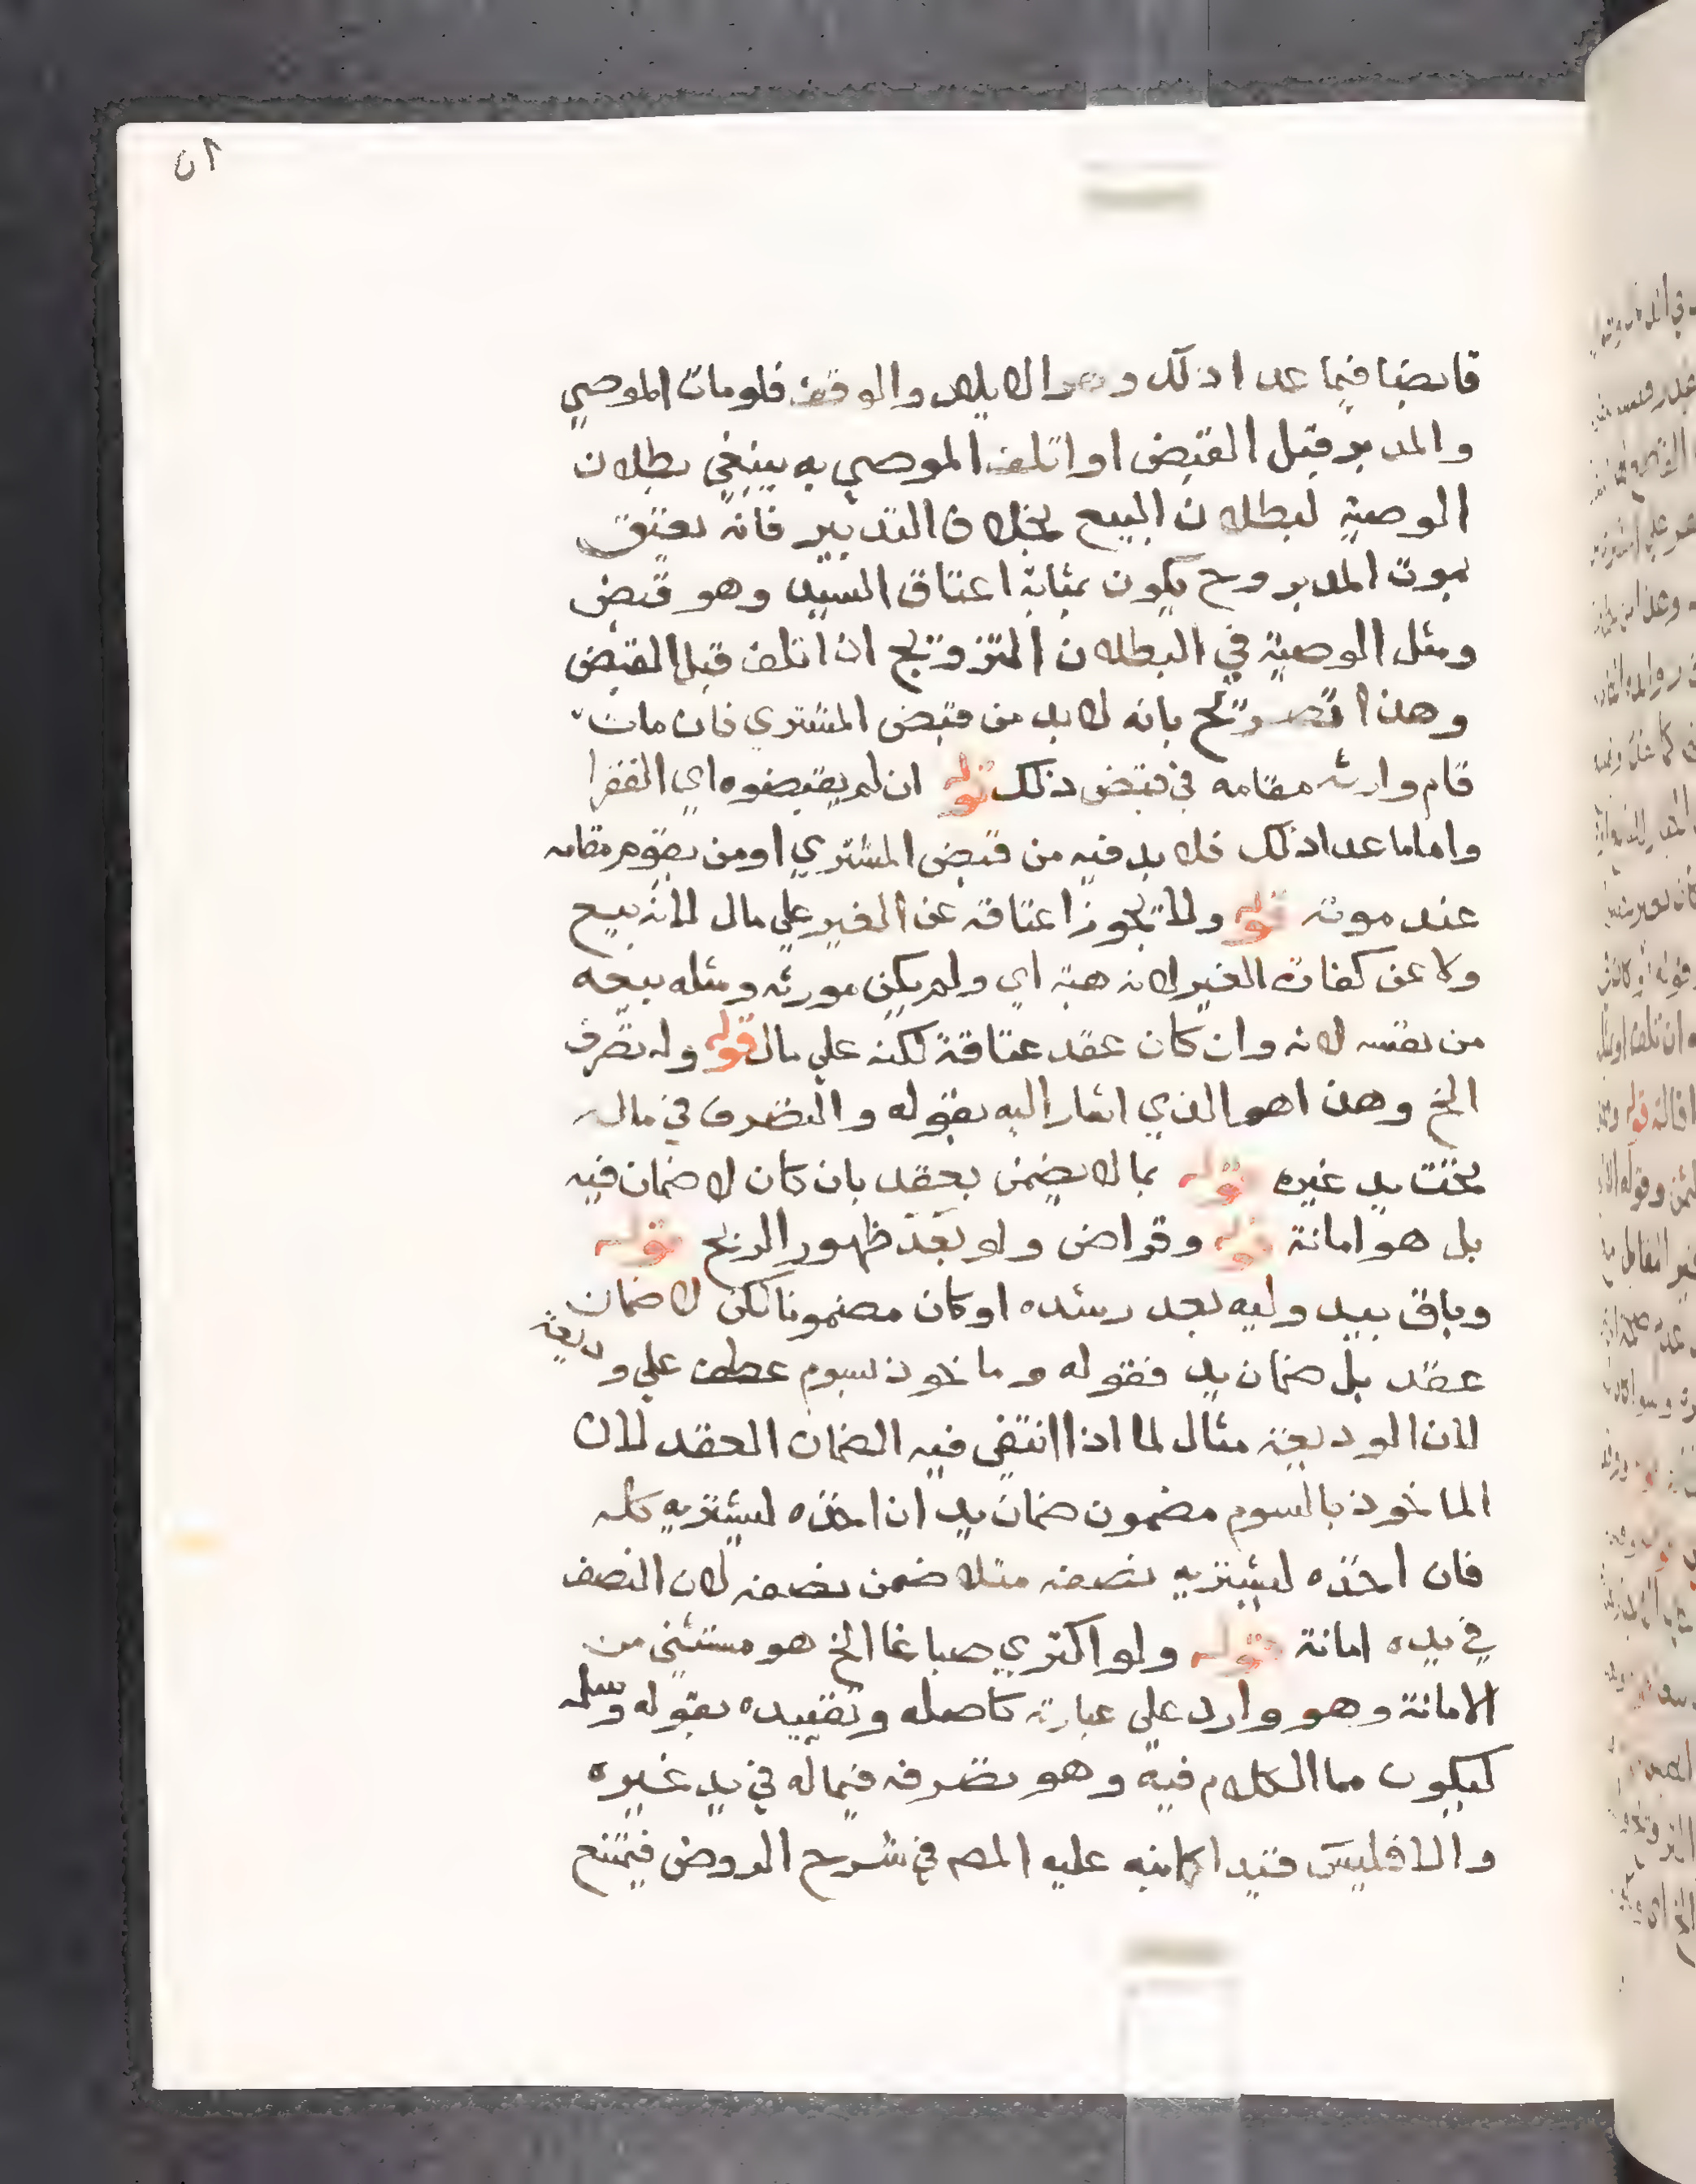 قابضا فيما عدا ذلك وهو الايلاد والوقف فلو مات الموصي
والمدبر قبل القبض او اتلف الموصي به ينبغي بطلان
الوصية لبطلان البيع بخلاف التدبير فانه يعتق
بموت المدبر وح يكون بمثابة اعتاق السيد وهو قبض
ومثل الوصية في البطلان التزويج اذا تلف قبل القبض
وهذا تصريح بانه لا بد من قبض المشتري فان مات
قام وارثه مقامه في قبض ذلك قوله ان لم يقبضوه اي الفقرا
واما ما عدا ذلك فلا بد فيه من قبض المشتري او من يقوم مقامه
عند موته قوله ولا يجوز اعتاقه عن الغير علي مال لانه بيع
ولا عن كفارة الغير لانه هبة اي ولم يكن مورثه ومثله بيعه
من نفسه لانه وان كان عقد عتاقة لكنه علي مال قوله وله تصرف
الخ وهذا هو الذي اشار اليه بقوله والتصرف في ماله
تحت يد غيره قوله بما لا يضمن بعقد بان كان لا ضمان فيه
بل هو امانة قوله وقراض ولو بعد ظهور الربح قوله
وباق بيد وليه بعد رشده او كان مضمونا لكن لا ضمان
عقد بل ضمان يد فقوله وماخوذ بسوم عطف علي وديعة
لان الوديعة مثال لما اذا انتفي فيه الضمان العقد لان
الماخوذ بالسوم مضمون ضمان يد ان اخذه ليشتريه كله
فان اخذه ليشتريه نصفه مثلا ضمن نصفه لان النصف
في يده امانة قوله ولو اكتري صباغا الخ هو مستثني من
الامانة وهو وارد علي عبارة كاصله وتقييده بقوله وسلمه
ليكون مما الكلام فيه وهو تصرفه فيما له في يد غيره
والا فليس قيدا كما نبه عليه المصـ في شرح الروض فيمتنع